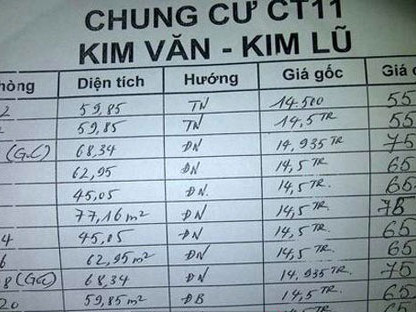 CHUNG CƯ CT11
KIM VĂN - KIM LŨ
hòng Diện tích Hướng Giá gốc Giá c
2 59,85 TN 14.500 55
59,85 TN 14,5 TR 55
(GC) 68,34 ĐN 14,935 TR 75
62,95 ĐN 14,5 TR 65
45,05 ĐN. 14,5 TR. 65
77,16 m² ĐN 14,5 TR. 78
4 45,05 ĐN 14,5 TR. 65
6 62,95 m² ĐN 14,5 TR. 65
8 (GC) 68,34 ĐN 14,935 TR. 75
20 59,85 m² ĐB 14,5 TR. 65